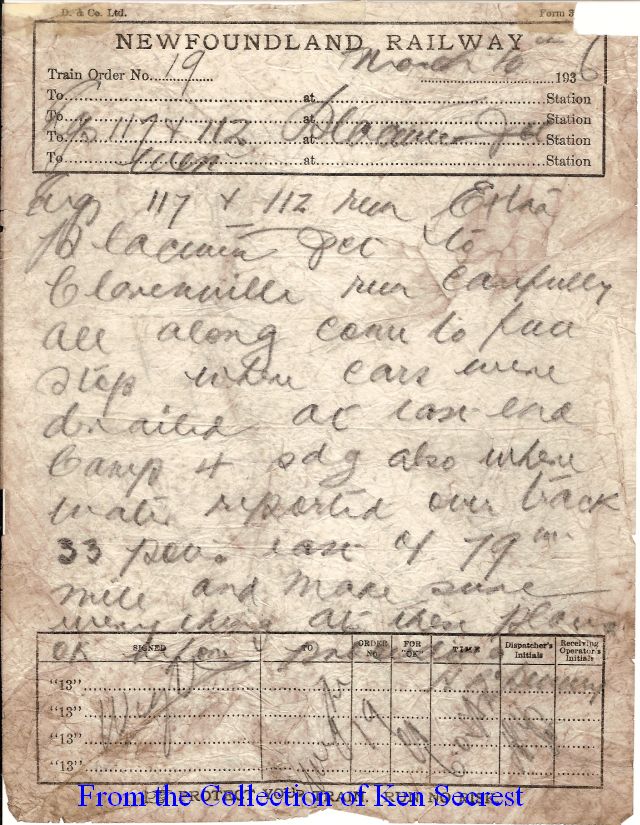 D. & Co. Ltd. Form 3
NEWFOUNDLAND RAILWAY
Train Order No. 19 March 10 1936
To at Station
To at Station
To 117 & 112 at Station
To at Station
Engs 117 & 112 run Extra
Jct to
Clarenville run carefully
all along come to full
stop where cars were
derailed at east end
Camp 4 sdg also where
water reported over track
33 poles east of 79
mile and make sure
everything at these places
ok before
SIGNED TO ORDER No. FOR "OK" TIME Dispatcher's Initials Receiving Operator's Initials
"13"
"13" 19
"13"
"13"
PROTECT YOUR TRAIN. RUN NO RISK
From the Collection of Ken Seurest